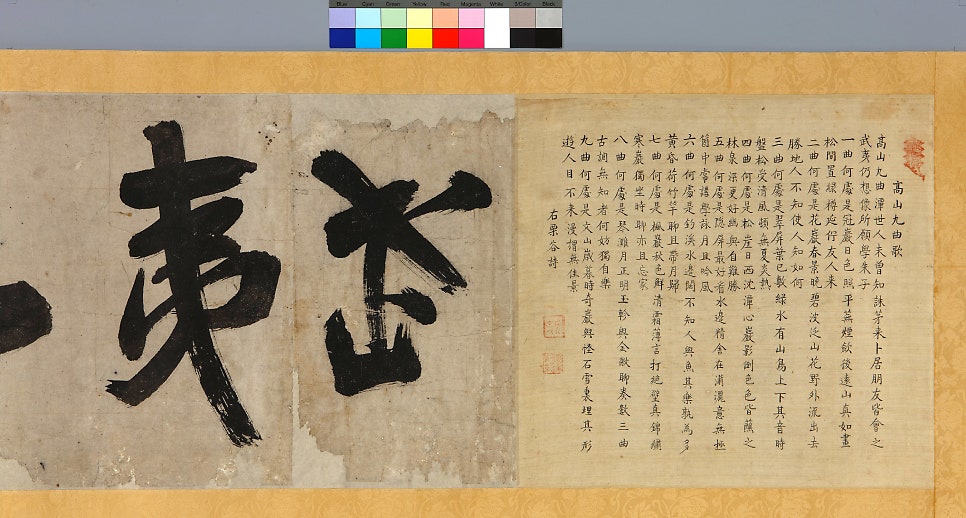 高山九曲歌
高山九曲潭世人未曾知誅茅来卜居朋友皆會之
武夷仍想像所願學朱子
一曲何處是冠巖日色照平蕪煙斂後遠山真如畫
松間置綠樽延佇友人来
二曲何處是花巖春景晚碧波泛山花野外流出去
勝地人不知使人知如何
三曲何處是翠屏葉已敷綠水有山鳥上下其音時
盤松受清風頓無夏炎熱
四曲何處是松崖日西沈潭心巖影倒色色皆蘸之
林泉深更好幽興自難勝
五曲何處是隠屏最好看水邊精舍在瀟灑意無極
箇中常講學詠月且吟風
六曲何處是釣溪水邊闊不知人與魚其樂孰為多
黄昏荷竹竿聊且帶月歸
七曲何處是楓巖秋色鮮清霜薄言打絶壁真錦繡
寒巖獨坐時聊亦且忘家
八曲何處是琴灘月正明玉軫與金徽聊奏數三曲
古調無知者何妨獨自樂
九曲何處是文山歲暮時奇巖與怪石雪裏埋其形
遊人自不来漫謂無佳景
右栗谷詩
武
夷
Blue Cyan Green Yellow Red Magenta White 3/Color Black